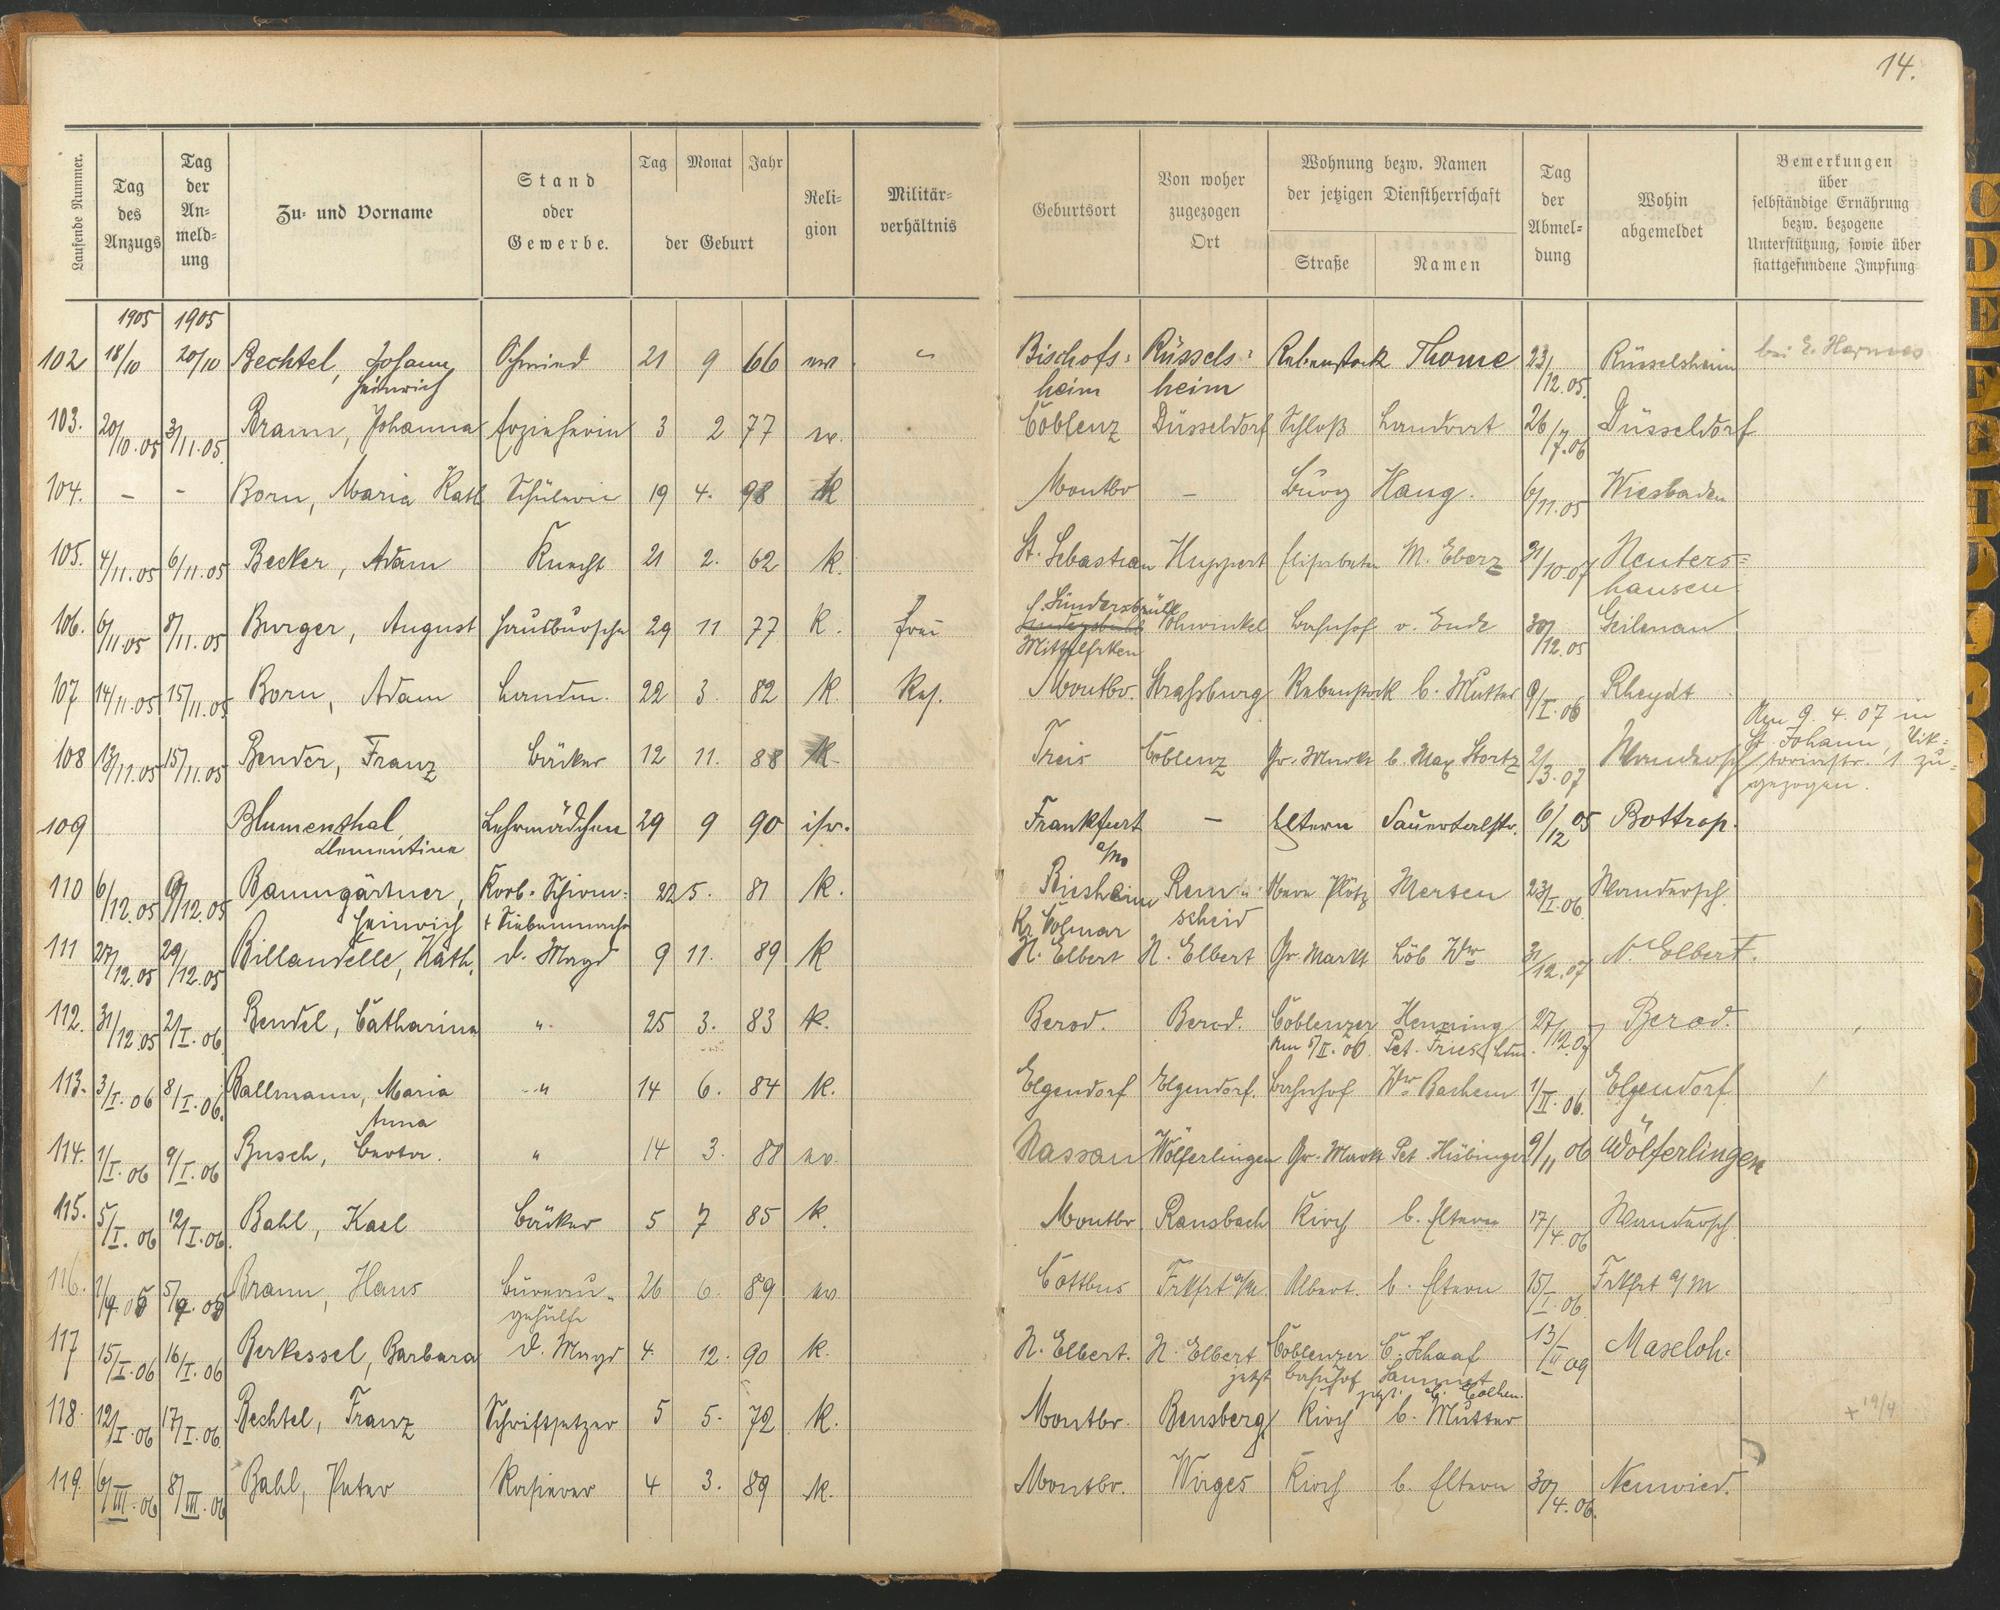 14.
Laufende Nummer.
Tag des Anzugs
Tag der An-meld-ung
Zu- und Vorname
Stand oder Gewerbe.
Tag Monat Jahr
der Geburt
Reli-gion
Militär-verhältnis
Geburtsort
Von woher zugezogen Ort
Wohnung bezw. Namen der jetzigen Dienstherrschaft
Straße
Namen
Tag der Abmel-dung
Wohin abgemeldet
Bemerkungen über selbständige Ernährung bezw. bezogene Unterstützung, sowie über stattgefundene Impfung
1905 1905
102 18/10 20/10 Bechtel, Johann Heinrich Schmied 21 9 66 ev. Bischofs-heim Rüssels-heim Rebenstock Thome 23/12.05. Rüsselsheim bei E. Hermes
103. 20/10.05 3/11.05. Braun, Johanna Erzieherin 3 2 77 ev. Coblenz Düsseldorf Schloß Landrat 26/7.06 Düsseldorf
104. – – Born, Maria Kath Schülerin 19 4. 98 K Montbr – Burg Haug. 6/11.05 Wiesbaden
105. 4/11.05 6/11.05 Becker, Adam Knecht 21 2. 62 k. St. Sebastian Huppert Elisabeten M. Eberz 31/10.07 Neuters-hausen
106. 6/11.05 8/11.05 Burger, August Hausbursche 29 11 77 K. frei Sündersbühl Mittelfrken Vohwinkel Bahnhof v. Ende 30/12.05 Geilnau
107 14/11.05 15/11.05 Born, Adam Landm. 22 3. 82 K. Res. Montbr. Straßburg Rebenstock b. Mutter 9/I.06 Rheydt
108 13/11.05 15/11.05 Bender, Franz Bäcker 12 11. 88 K. Treis Coblenz Gr. Markt b. Max Stortz 2/3.07 Wandersch Am 9.4.07 in St. Johann, Vik-toriastr. 1 zu-gezogen.
109 Blumenthal, Clementine Lehrmädchen 29 9 90 isr. Frankfurt a/M – Eltern Sauertalstr. 6/12 05 Bottrop.
110 6/12.05 9/12.05 Baumgärtner, Heinrich Korb- Schirm- + Siebenmacher 22 5. 81 K. Biesheim Kr. Colmar Rem-scheid Obere Plötz Merten 23/I.06. Wandersch.
111 27/12.05 29/12.05 Billaudelle, Käth. d. Magd 9 11. 89 K N. Elbert N. Elbert Gr. Markt Löb Ww 31/12.07 N. Elbert.
112. 31/12.05 2/I.06. Bendel, Catharina " 25 3. 83 k. Berod. Berod. Coblenzer Henning am 5/II.06 Pet. Fries Ldm. 27/12.07 Berod.
113. 3/I.06 8/I.06. Ballmann, Maria Anna " 14 6. 84 K. Elgendorf Elgendorf. Bahnhof Ww Bachem 1/II.06. Elgendorf
114. 1/I.06 9/I.06 Busch, Berta. " 14 3. 88 ev. Nassau Wölferlingen Gr. Markt Pet. Hisbinger 9/11 06 Wölferlingen
115. 5/I.06 12/I.06. Bahl, Karl Bäcker 5 7 85 k. Montbr Ransbach Kirch b. Eltern 17/4.06 Wandersch
116. Braun, Hans Bureau-gehülfe 26 6. 89 ev. Cottbus Frkfrt a/M. Albert. b. Eltern 15/I.06 Frkfrt a/M
117 15/I.06 16/I.06 Berkessel, Barbara d. Magd 4. 12. 90 k. N. Elbert. N. Elbert Coblenzer C. Schaaf jetzt Bahnhof Sammet jezt. C. Cathen. 13/II 09 Maxeloh.
118. 12/I.06 17/I.06. Bechtel, Franz Schriftsetzer 5 5. 72 K. Montbr. Bensberg Kirch b. Mutter + 19/4
119. 6/III.06 8/III.06 Bahl, Peter Rasierer 4 3. 89 K. Montbr. Wirges Kirch b. Eltern 30/4.06. Neuwied.